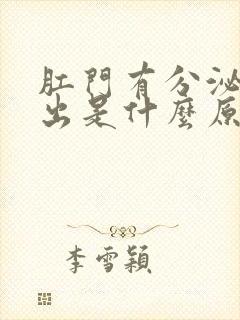 肛門有分泌
出是什麼原
李雪穎